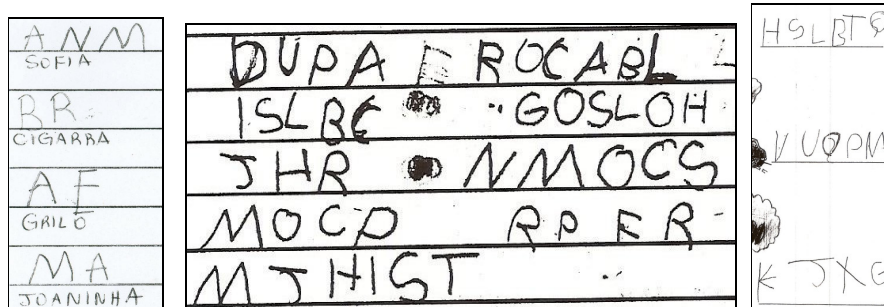 A N M
SOFIA
BR
CIGARRA
A F
GRILO
M A
JOANINHA
DUPA E ROCABL
ISLBC GOSLOH
JHR NMOCS
MOCP RPFR
MJHIST
HSLBT
VUOPM
K JX